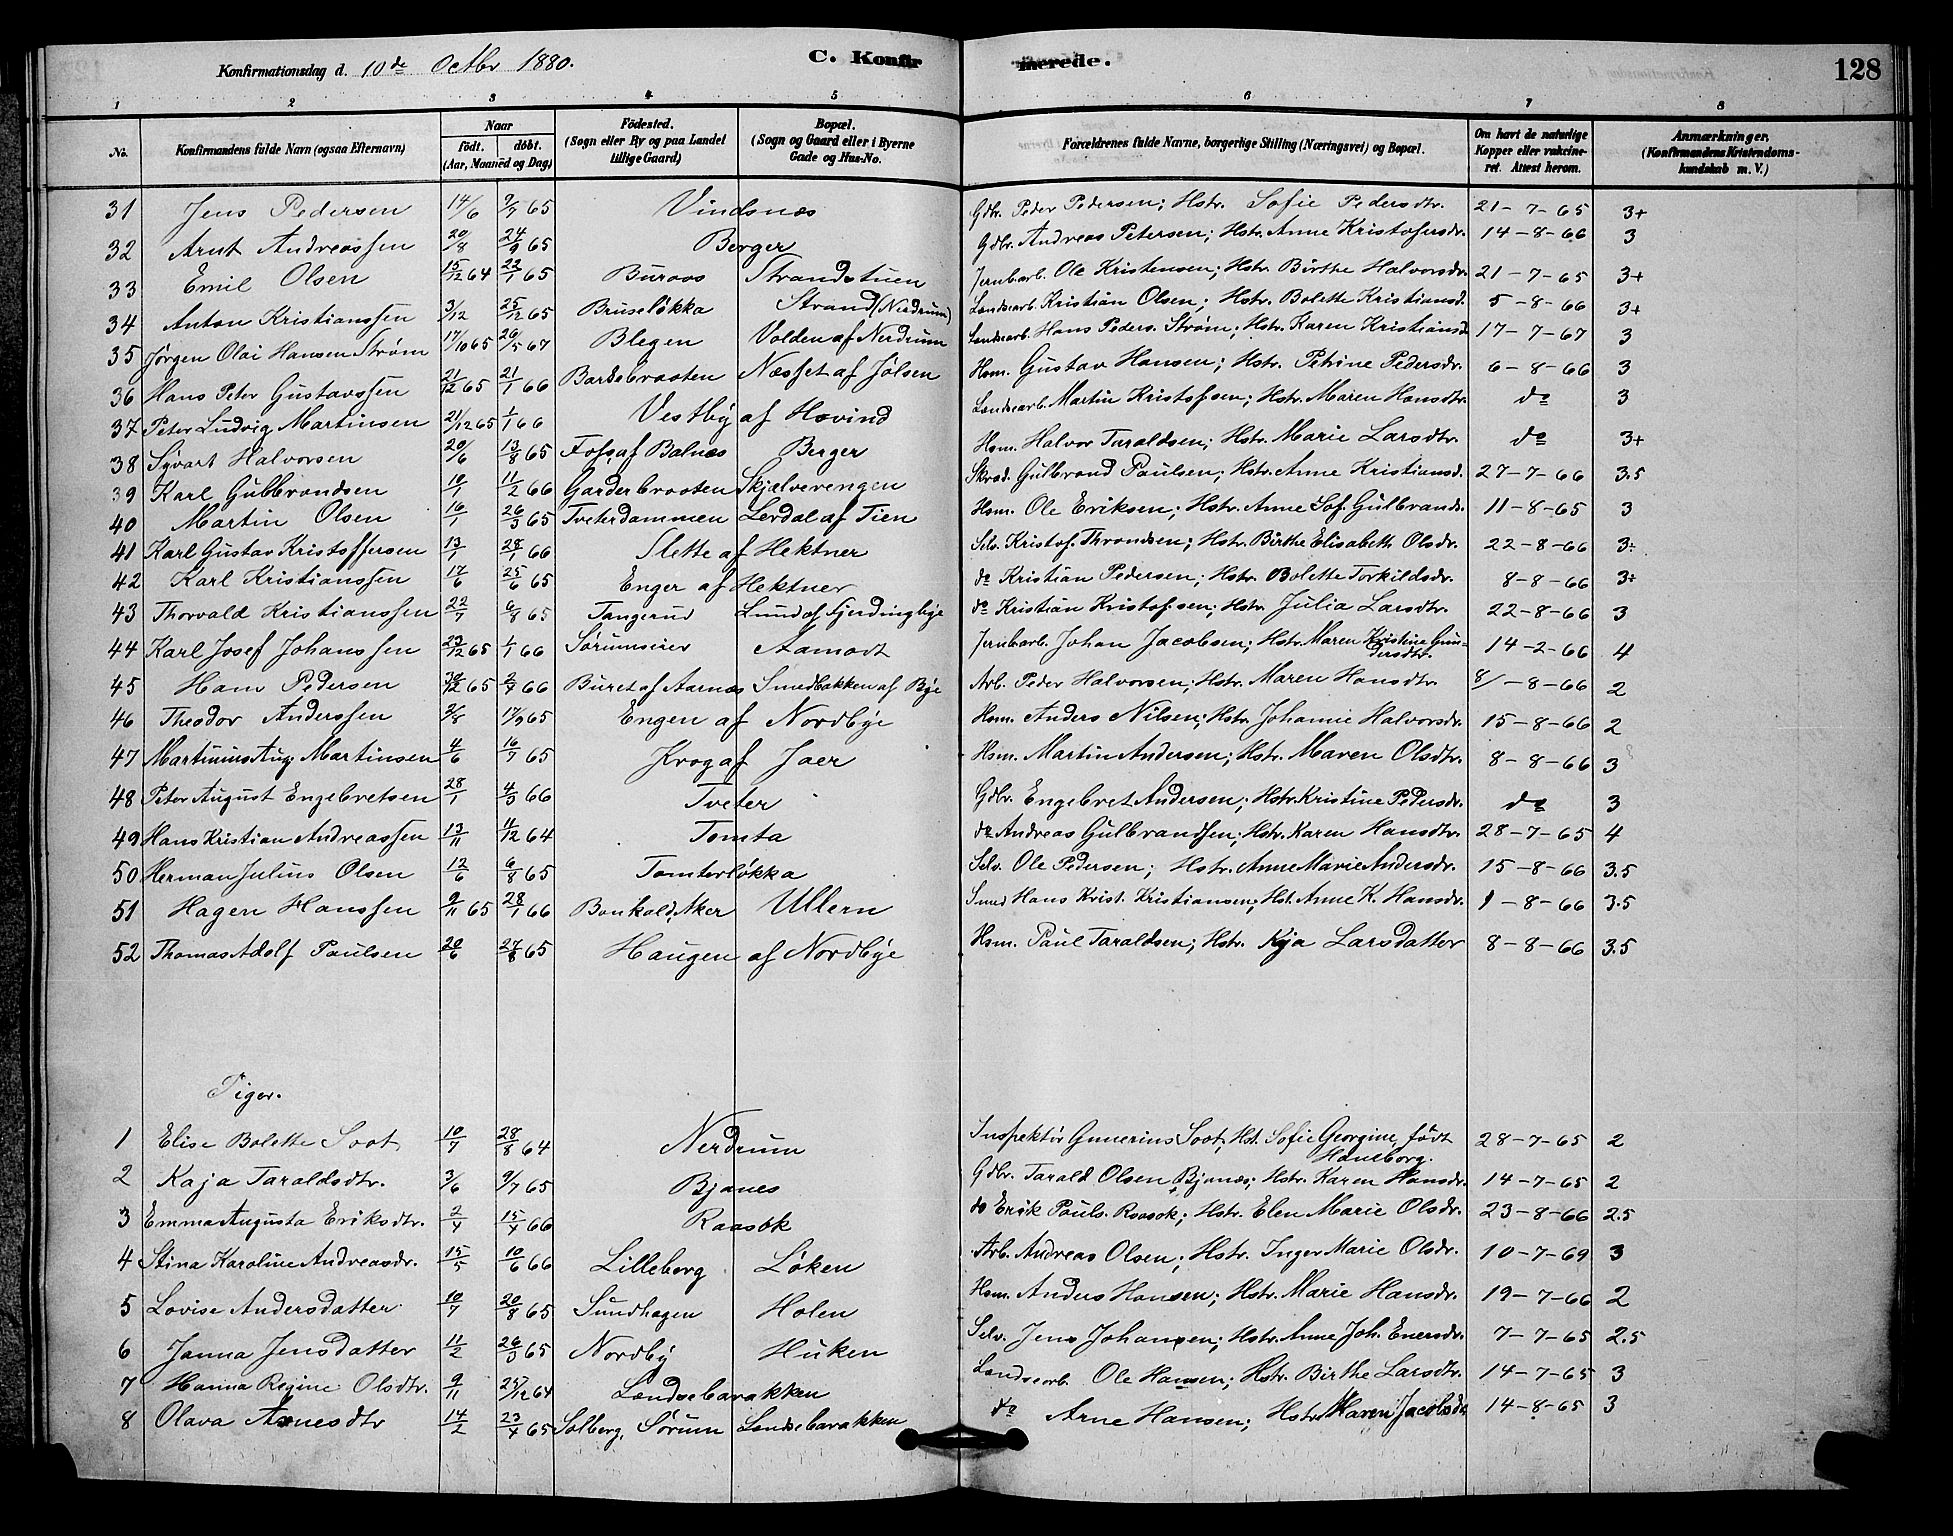 Konfirmationsdag d. 10de Octbr 1880. C. Konfirmerede. 128
1 2 3 4 5 6 7 8
No. Konfirmandens fulde Navn (ogsaa Efternavn) Naar födt. döbt. (Aar, Maaned og Dag) Födested. (Sogn eller By og paa Landet tillige Gaard) Bopæl. (Sogn og Gaard eller i Byerne Gade og Hus-No. Forældrenes fulde Navne, borgerlige Stilling (Næringsvei) og Bopæl. Om havt de naturlige Kopper eller vakcineret. Attest herom. Anmærkninger. (Konfirmandens Kristendomskundskab m. V.)
31 Jens Pedersen 14/6 9/7 65 Vindsnæs Gdbr. Peder Pedersen; Hstr. Sofie Pedersdtr. 21-7-65 3+
32 Arnt Andreassen 20/8 24/9 65 Berger Gdbr. Andreas Petersen; Hstr. Anne Kristofersdr. 14-8-66 3
33 Emil Olsen 15/12 64 22/1 65 Buraas Strandstuen Jernbarb. Ole Kristensen; Hstr. Birthe Halvorsdr. 21-7-65 3+
34 Anton Kristianssen 3/12 25/12 65 Bruseløkka Strand (Nerdrum) Landsearb. Kristian Olsen; Hstr. Bolette Kristiansd. 5-8-66 3+
35 Jørgen Olai Hansen Strøm 17/10 65 26/5 67 Blegen Volden af Nerdrum Landsearb. Hans Peders. Strøm; Hstr. Karen Kristiansd. 17-7-67 3
36 Hans Peter Gustavssen 21/12 65 21/1 66 Bardebraaten Næsset af Jölsen Hsm. Gustav Hansen; Hstr. Petrine Pedersdr. 6-8-66 3
37 Peter Ludvig Martinsen 21/12 65 1/1 66 Vestby af Hovind Landsearb. Martin Kristofsen; Hstr. Maren Hansdtr. do 3
38 Syvart Halvorsen 20/6 13/8 65 Foss af Balnæs Berger Hsm. Halvor Taraldsen; Hstr. Marie Larsdtr. do 3+
39 Karl Gulbrandsen 10/1 11/2 66 Garderbraaten Skjælverengen Skræd. Gulbrand Paulsen; Hstr. Anne Kristiansd. 27-7-66 3.5
40 Martin Olsen 16/1 26/3 65 Tveterdammen Lerdal af Tien Hsm. Ole Eriksen; Hstr. Anne Sof. Gulbrands. 11-8-65 3
41 Karl Gustav Kristoffersen 13/1 28/1 66 Slette af Hektner Selv. Kristof. Throndsen; Hstr. Birthe Elisabeth Olsdr. 22-8-66 3÷
42 Karl Kristianssen 17/6 25/6 65 Enger af Hektner do Kristian Pedersen; Hstr. Bolette Torkildsdr. 8-8-66 3÷
43 Thorvald Kristianssen 22/7 6/8 65 Tangerud Lund af Fjerdingbye do Kristian Kristofsen; Hstr. Julia Larsdtr. 22-8-66 3
44 Karl Josef Johanssen 23/12 65 1/1 66 Sørumseier Aamodt Jernbarb. Johan Jacobsen; Hstr. Maren Kristine Gundersdtr. 14-2-66 4
45 Hans Pedersen 30/12 65 2/4 66 Buret af Aarnæs Smedbakken af Bye Arb. Peder Halvorsen; Hstr. Maren Hansdtr. 8/-8-66 2
46 Theodor Anderssen 2/8 17/9 65 Engen af Nordbye Hsm. Anders Nilsen; Hstr. Johanne Halvorsdr. 15-8-66 2
47 Martinius Aug. Martinsen 4/6 16/7 65 Krog af Jaer Hsm. Martin Andersen; Hstr. Maren Olsdtr. 8-8-66 3
48 Peter August Engebretsen 28/1 4/3 66 Tveter Gdbr. Engebret Andersen; Hstr. Kristine Pedersdr. do 3
49 Hans Kristian Andreassen 13/11 4/12 64 Tomta do Andreas Gulbrandsen; Hstr. Karen Hansdtr. 28-7-65 4
50 Herman Julius Olsen 12/6 6/8 65 Tomterløkka Selv. Ole Pedersen; Hstr. Anne Marie Andersdr. 15-8-66 3.5
51 Hagen Hanssen 9/11 65 28/1 66 Bonkald, Aker Ullern Smed Hans Krist. Kristiansen; Hst. Anne K. Hansdr. 1-8-66 3.5
52 Thomas Adolf Paulsen 20/6 27/8 65 Haugen af Nordbye Hsm. Paul Taraldsen; Hstr. Kaja Larsdatter 8-8-66 3.5
Piger.
1 Elise Bolette Soot 10/7 28/8 64 Nerdrum Inspektör Gunerius Soot; Hst. Sofie Georgine, født Hansborg. 28-7-65 2
2 Kaja Taraldsdtr. 3/6 9/7 65 Bjanes Gdbr. Tarald Olsen Bjanæs; Hstr. Karen Hansdr. 14-7-65 2
3 Emma Augusta Eriksdtr. 2/4 15/4 66 Raasok do Erik Pauls. Raasok; Hstr. Elen Marie Olsdr. 23-8-66 2.5
4 Stina Karoline Andreasdr. 15/5 10/6 66 Lilleborg Løken Arb. Andreas Olsen; Hstr. Inger Marie Olsdr. 10-7-69 3
5 Lovise Andersdatter 10/7 20/8 65 Sundhagen Holen Hsm. Anders Hansen; Hstr. Marie Hansdr. 19-7-66 2
6 Janna Jensdatter 11/2 26/3 65 Nordby Huken Selv. Jens Johansen; Hstr. Anne Joh. Enersdr. 7-7-65 2.5
7 Hanna Regine Olsdtr. 9/11 25/12 64 Lændsebarakken Lændsearb. Ole Hansen; Hstr. Birthe Larsdtr. 14-7-65 3
8 Olava Arnesdtr 14/2 23/4 65 Solberg, Sørum Lændsebarakken do Arne Hansen; Hstr. Maren Jacobsdr. 14-8-65 3